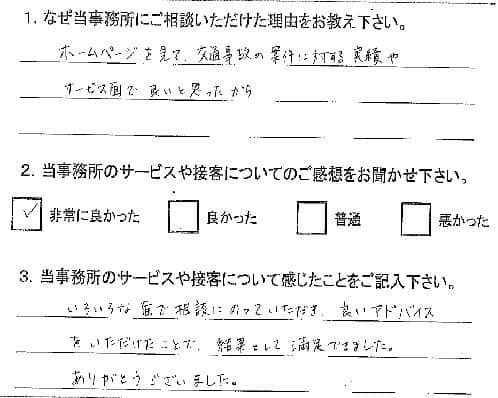 1. なぜ当事務所にご相談いただけた理由をお教え下さい。
ホームページを見て、交通事故の案件に対する実績や
サービス面で良いと思ったから
2. 当事務所のサービスや接客についてのご感想をお聞かせ下さい。
✓ 非常に良かった 良かった 普通 悪かった
3. 当事務所のサービスや接客について感じたことをご記入下さい。
いろいろな面で相談にのっていただき、良いアドバイス
をいただけたことで、結果として満足できました。
ありがとうございました。